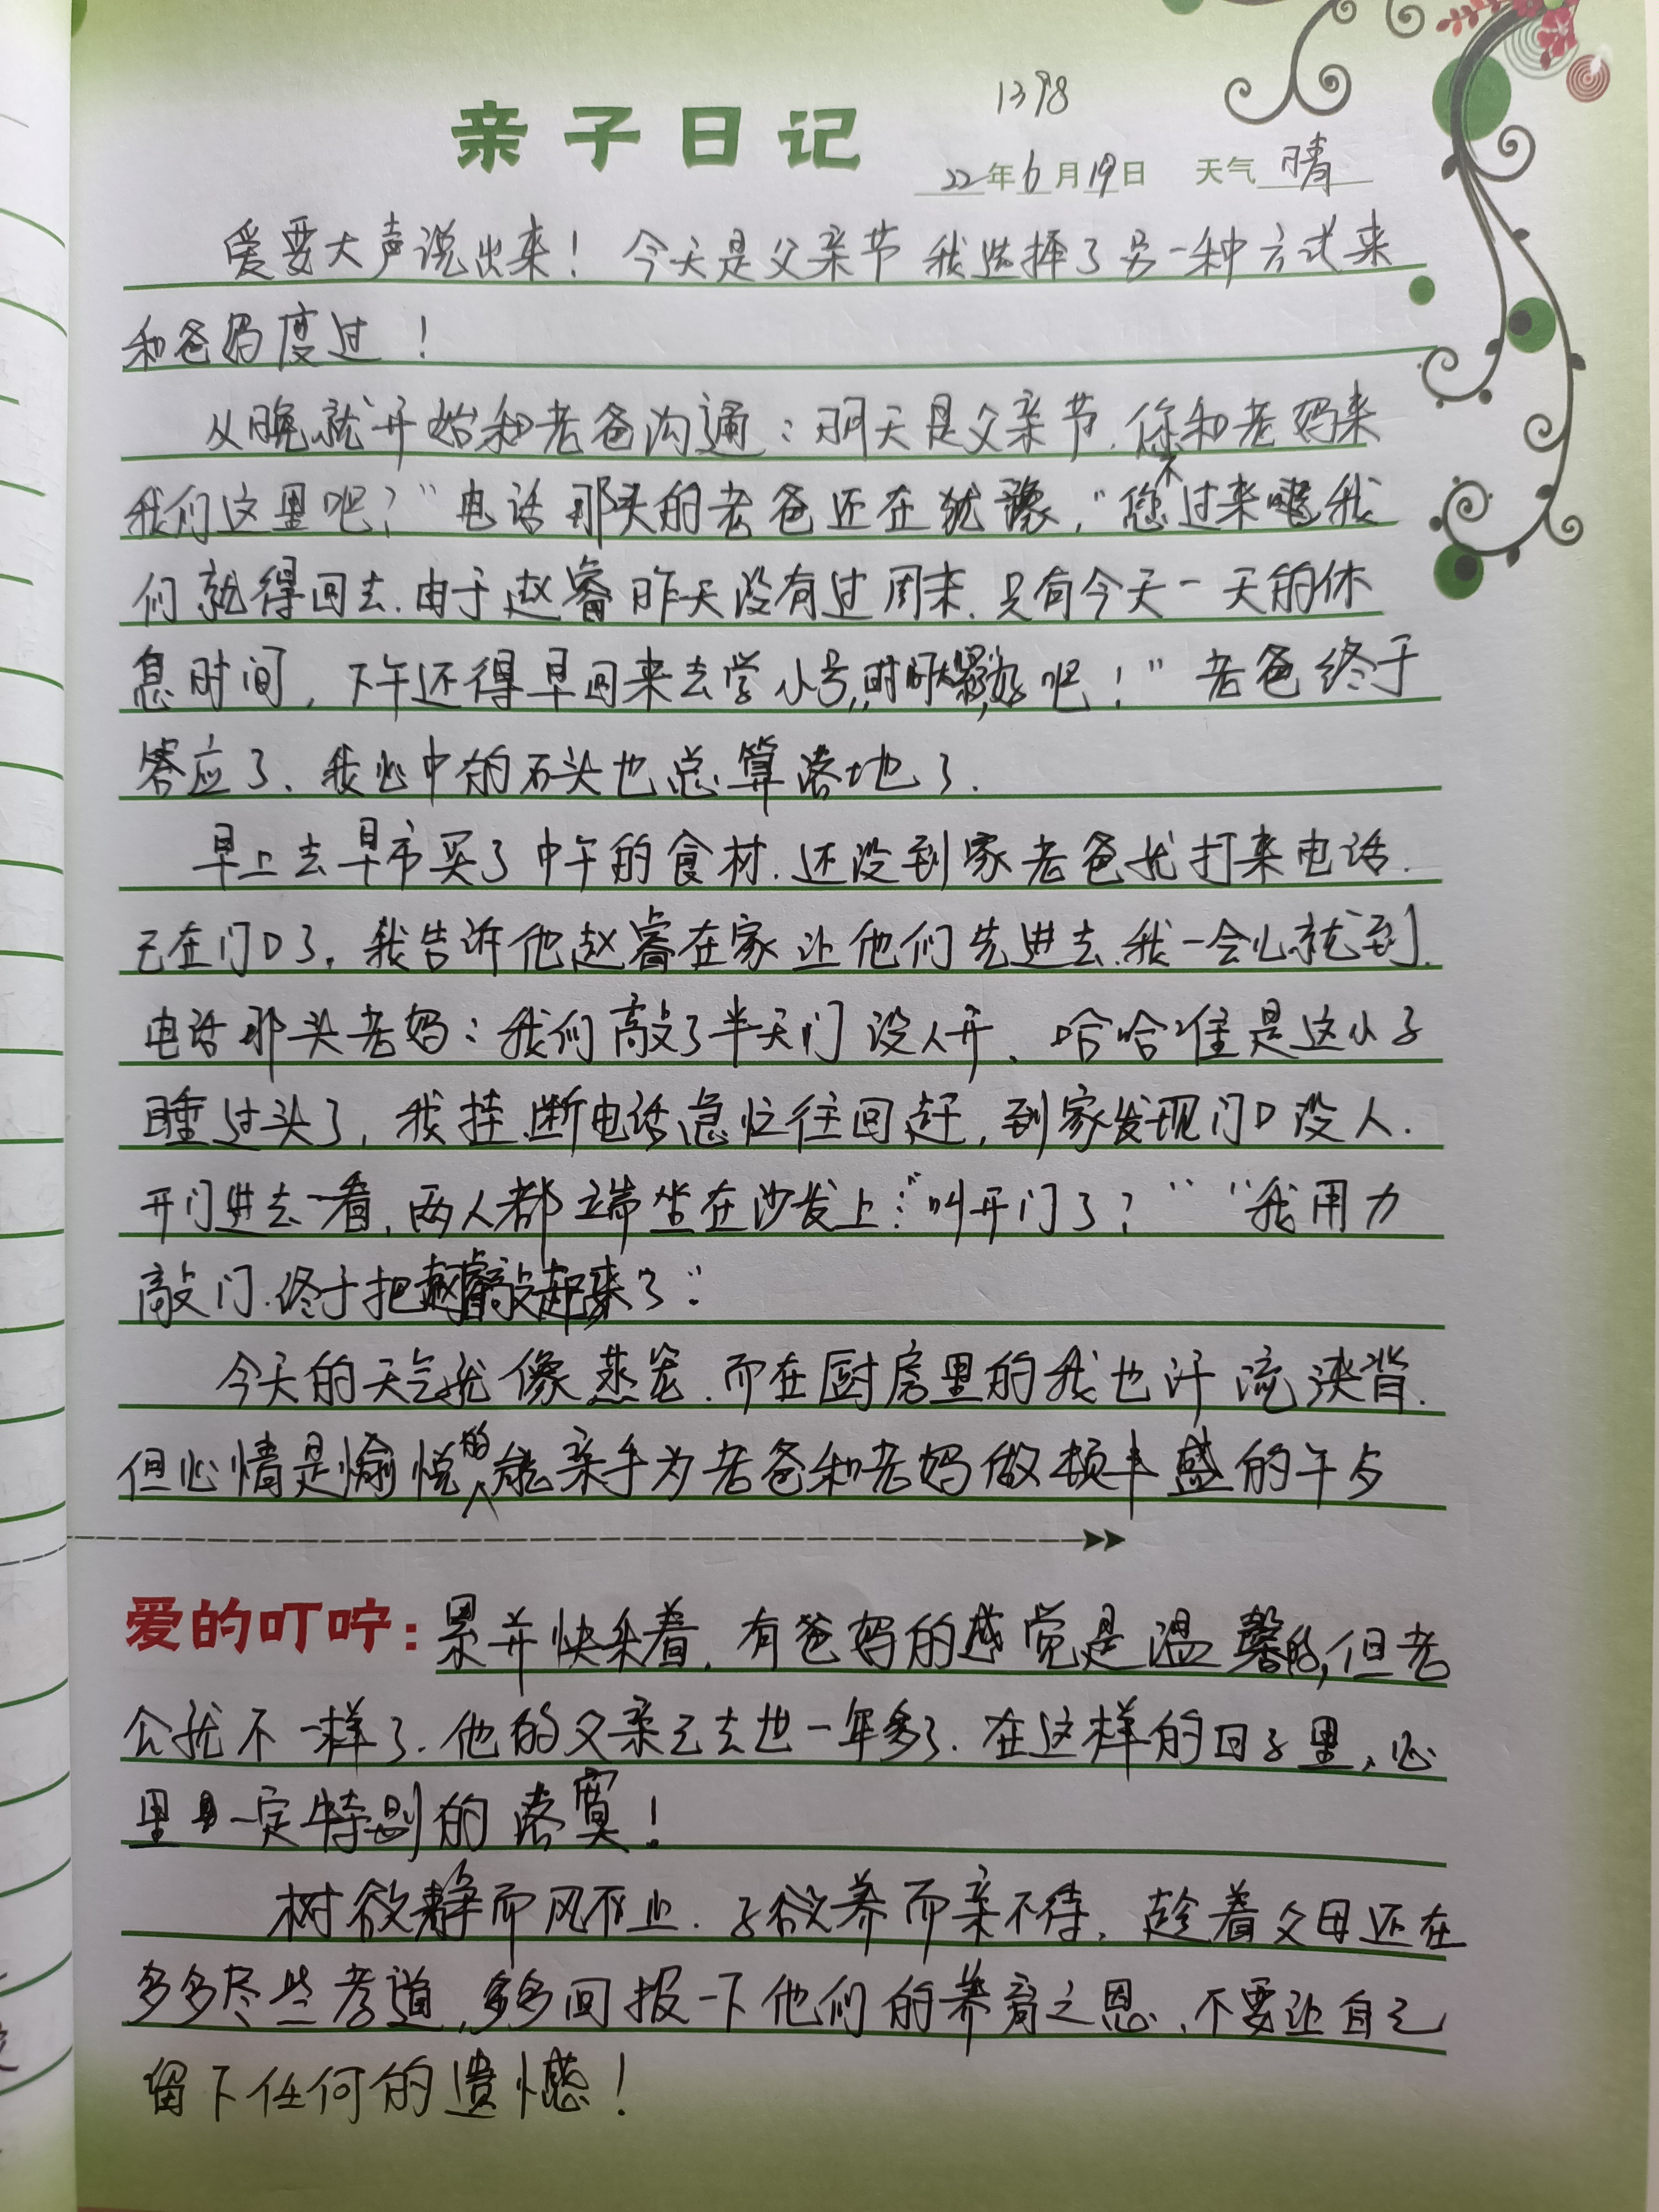 1398
亲子日记
22年6月19日 天气 晴
爱要大声说出来！今天是父亲节 我选择了另一种方式来
和爸妈度过！
从晚就开始和老爸沟通：明天是父亲节.你和老妈来
我们这里吧？”电话那头的老爸还在犹豫，“您不过来我
们就得回去.由于赵睿昨天没有过周末.只有今天一天的休
息时间，下午还得早回来去学小号，时间好吧！”老爸终于
答应了、我心中的石头也总算落地了.
早上去早市买了中午的食材.还没到家老爸就打来电话.
已在门口了，我告诉他赵睿在家让他们先进去.我一会儿就到.
电话那头老妈：我们敲了半天门没人开、哈哈准是这小子
睡过头了，我挂断电话急忙往回赶，到家发现门口没人.
开门进去一看，两人都端坐在沙发上：“叫开门了？”“我用力
敲门.终于把赵睿敲起来了”
今天的天气就像蒸笼.而在厨房里的我也汗流浃背.
但心情是愉悦的能亲手为老爸和老妈做顿丰盛的午歺
爱的叮咛：累并快乐着，有爸妈的感觉是温馨的，但老
公就不一样了.他的父亲已去世一年多了.在这样的日子里、心
里一定特别的落寞！
树欲静而风不止.子欲养而亲不待，趁着父母还在
多多尽些孝道，多多回报一下他们的养育之恩、不要让自己
留下任何的遗憾！